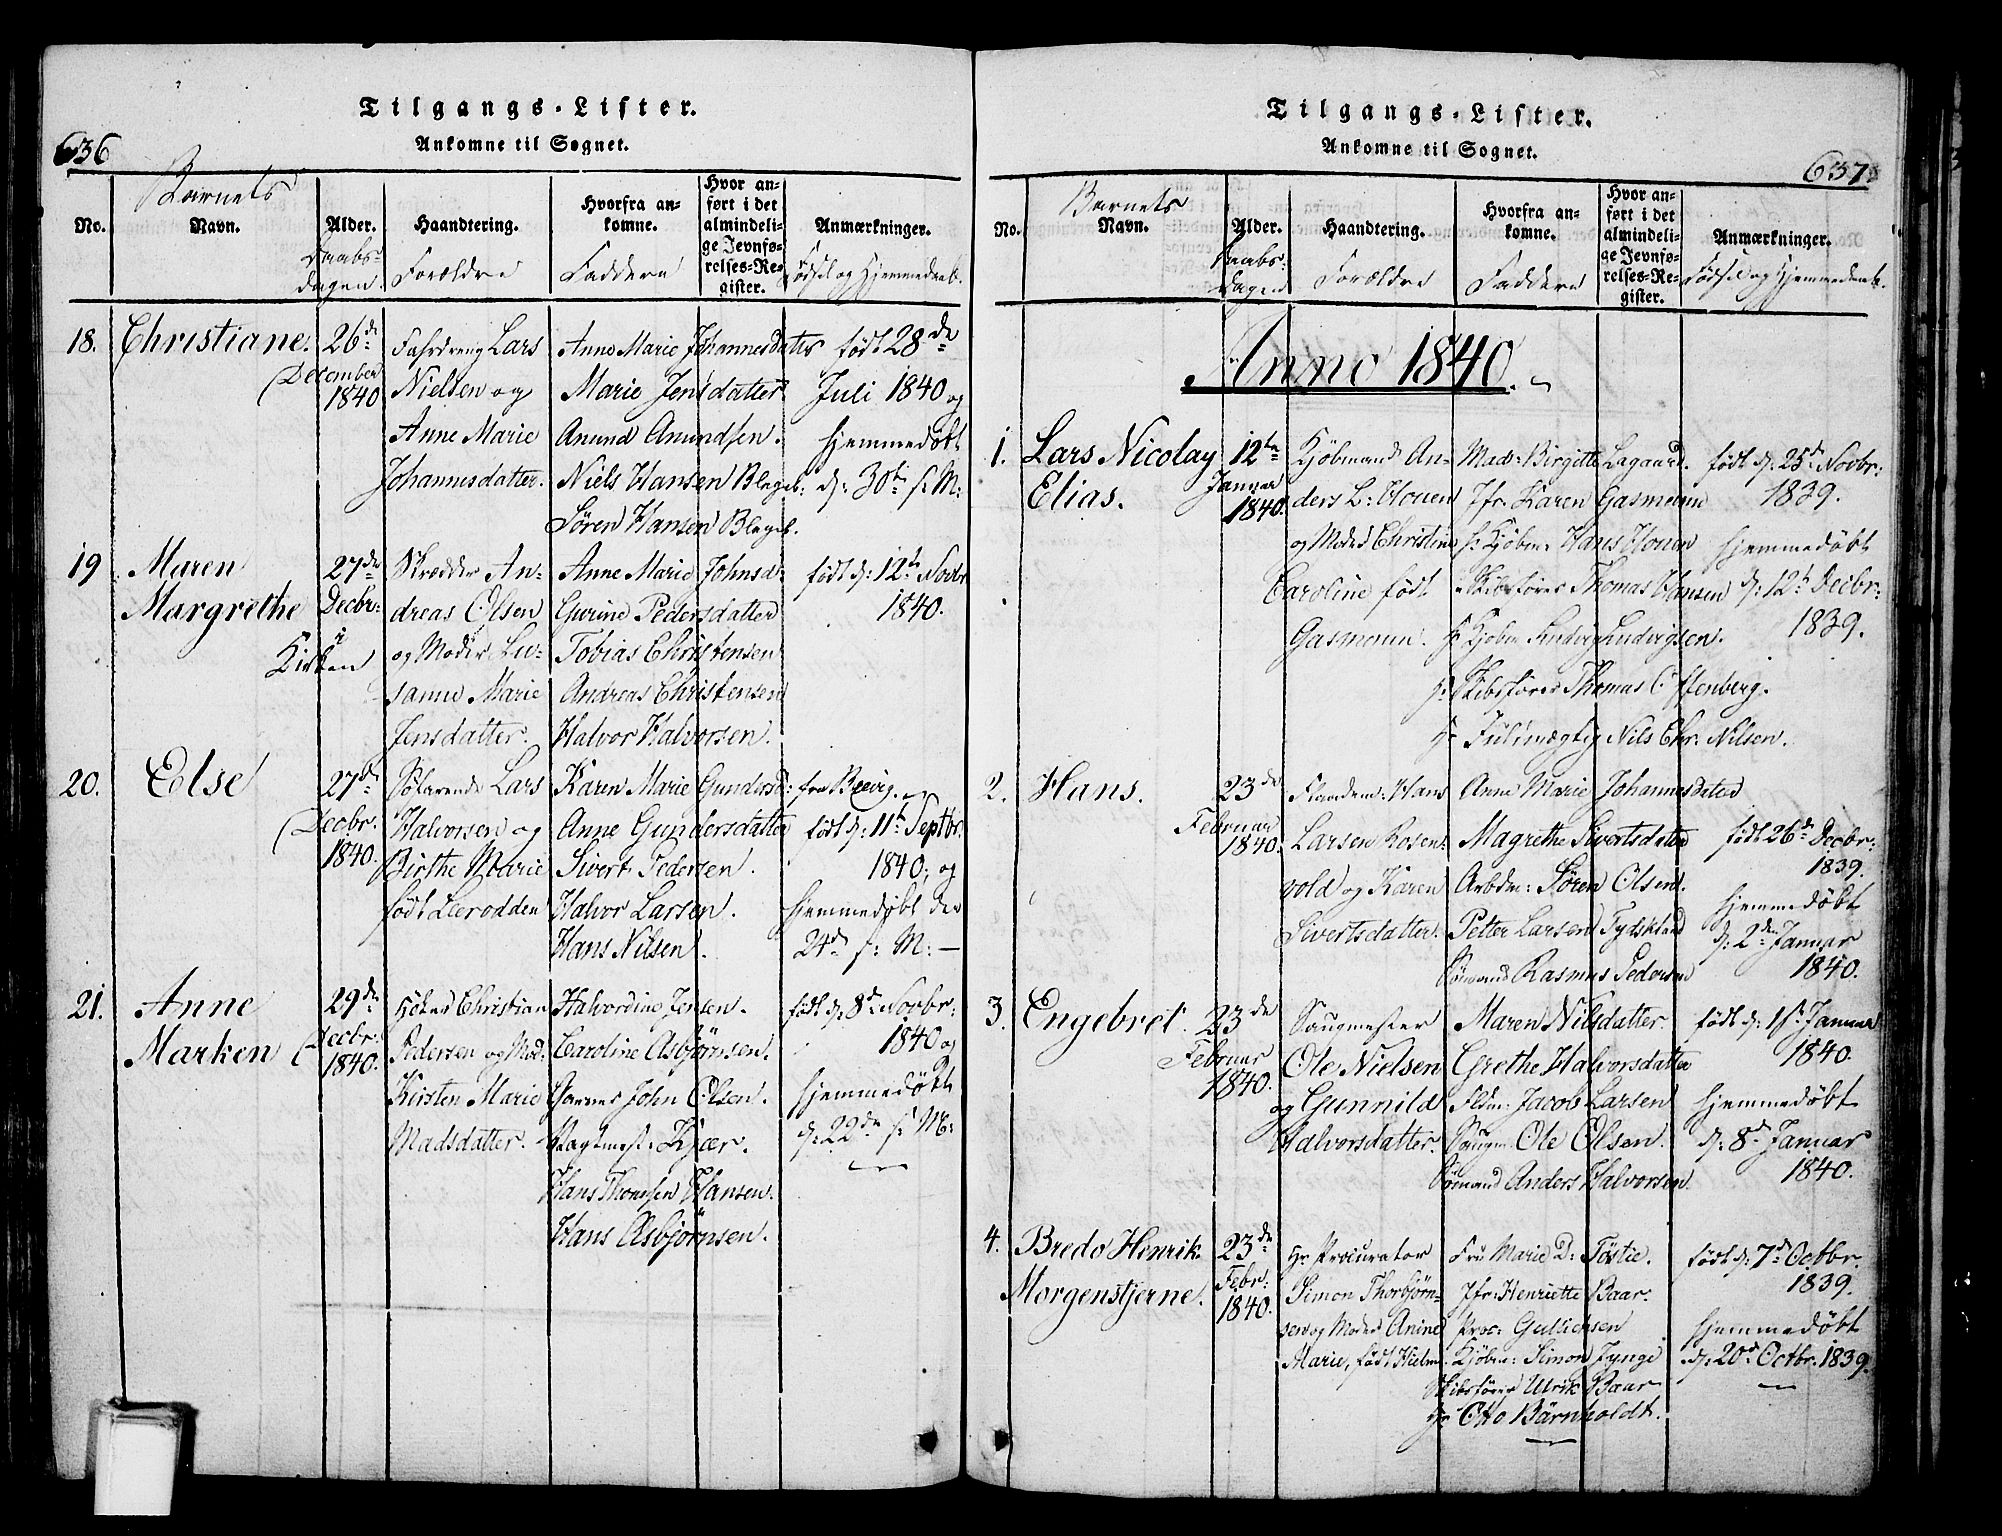 636
Tilgangs-Lister.
Ankomne til Sognet.
No.
Barnets
Navn.
Alder.
Daabs-
dagen.
Haandtering.
Forældre
Hvorfra an-
komne.
Faddere
Hvor an-
ført i det
almindeli-
ge Jevnfø-
relses-Re-
gister.
Anmærkninger.
Födsel og Hjemmedaab.
18. Christiane.
26de
December
1840
Lars
Nielsen og
Anne Marie
Johannesdatter.
Anne Marie Johannesdatter
Marie Jensdatter
Anund Anundsen.
Niels Hansen
Søren Hansen
født 28de
Juli 1840 og
hjemmedøbt
d: 30te s: M:
19 Maren
Margrethe
27de
Decbr:
i
Kirken
Skrædder An-
dreas Olsen
og Moder Lu-
sanne Marie
Jensdatter.
Anne Marie Johnsd:
Gurine Pedersdatter
Tobias Christensen
Andreas Christensen
Halvor Halvorsen.
født d: 12te Novbr
1840.
20. Else
27de
Decbr.
1840.
Lars
Halvorsen og
Birthe Marie
født Leerodden
Karen Marie Gundersd:
Anne Gundersdatter
Sivert Pedersen.
Halvor Larsen.
Hans Nilsen.
fra Brevig.
født d: 11te Septbr.
1840, og
hjemmedøbt den
24de s: M: —
21. Anne
Marken
29de
Decbr:
1840.
Christian
Pedersen og Mod:
Kirsten Marie
Madsdatter.
Halvordine Jensen.
Caroline Asbjørnsen.
John Olsen.
Kjær.
Hans Thomsen Hansen.
Hans Asbjørnsen.
født d: 8de Novbr:
1840 og
hjemmedøbt
d: 22de s: M:
637
Tilgangs-Lister.
Ankomne til Sognet.
No.
Barnets
Navn.
Alder.
Daabs-
dagen
Haandtering.
Forældre
Hvorfra an-
komne.
Faddere
Hvor an-
ført i det
almindeli-
ge Jevnfø-
relses-Re-
gister.
Anmærkninger.
Födsel og Hjemmedaab.
Anno 1840.
1. Lars Nicolay
Elias.
12te
Januar
1840.
Kjöbmand An-
ders L: Houen
og Moder Christine
Caroline født
Gasmann.
Mad: Birgitte Lagaard.
Jfr. Karen Gasmann
Hr Kjøbm: Hans Houen
Skibsfører Thomas Hansen
Hr Kjøbm Ludvig Ludvigsen.
Hr Skibsfører Thomas Offenberg.
Hr Fuldmægtig Nils Chr. Nilsen.
født d: 25de Novbr:
1839.
hjemmedøbt
d: 12te Decbr:
1839.
2. Hans.
23de
Februar
1840.
Hans
Larsen Rosen-
vold og Karen
Sivertsdatter.
Anne Marie Johannesdater
Magrethe Sivertsdater
Arbdm: Søren Olsen.
Petter Larsen Tydskland
Sømand Rasmus Pedersen
født 26de Decbr:
1839.
hjemmedøbt
d: 2den Januar
1840.
3. Engebret.
23de
Februar
1840.
Saugmester
Ole Nielsen
og Gunnild
Halvorsdatter.
Maren Nilsdatter.
Grethe Halvorsdatter
Jacob Larsen
Saugm Ole Olsen.
Sømand Anders Halvorsen.
født d: 1ste Januar
1840.
hjemmedøbt
d: 8de Januar
1840.
4. Bredo Henrik
Morgenstjerne.
23de
Febr:
1840.
Hr Procurator
Simon Thorbjørn-
sen og Moder Anine
Marie, født Hielm.
Fru Marie D: Töstie.
Jfr: Henriette Baar.
Proc: Gullichsen
Kjøbm: Simon Jynge
Skibsfører Ulrik Baar
Hr Otto Bärnholdt.
født d: 7de Octbr.
1839.
hjemmedøbt
d: 20de Octbr. 1839.